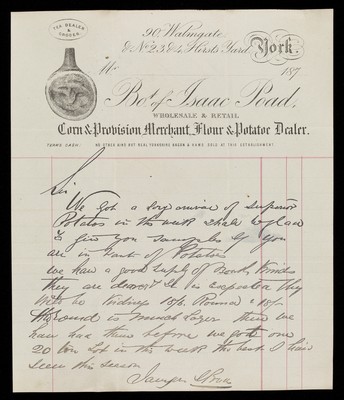 TEA DEALER
& GROCER.
90, Walmgate,
& Nos 2, 3, & 4, Hirst's Yard, York.
M 187
Bot of Isaac Poad,
WHOLESALE & RETAIL
Corn & Provision Merchant, Flour & Potator Dealer.
TERMS CASH. NO OTHER KIND BUT REAL YORKSHIRE BACON & HAMS SOLD AT THIS ESTABLISHMENT.
Sir
We got a large arrival of superior
Potatos in this week shall be glad
to give you samples if you
are in want of Potatos
we have a good supply of Kinds
they are dearer It is expected they
will be Kidneys 18/6. Rounds 18/-
The Round is much larger than we
have had them before we got one
20 Ton Lot in this week the best I have
seen this season